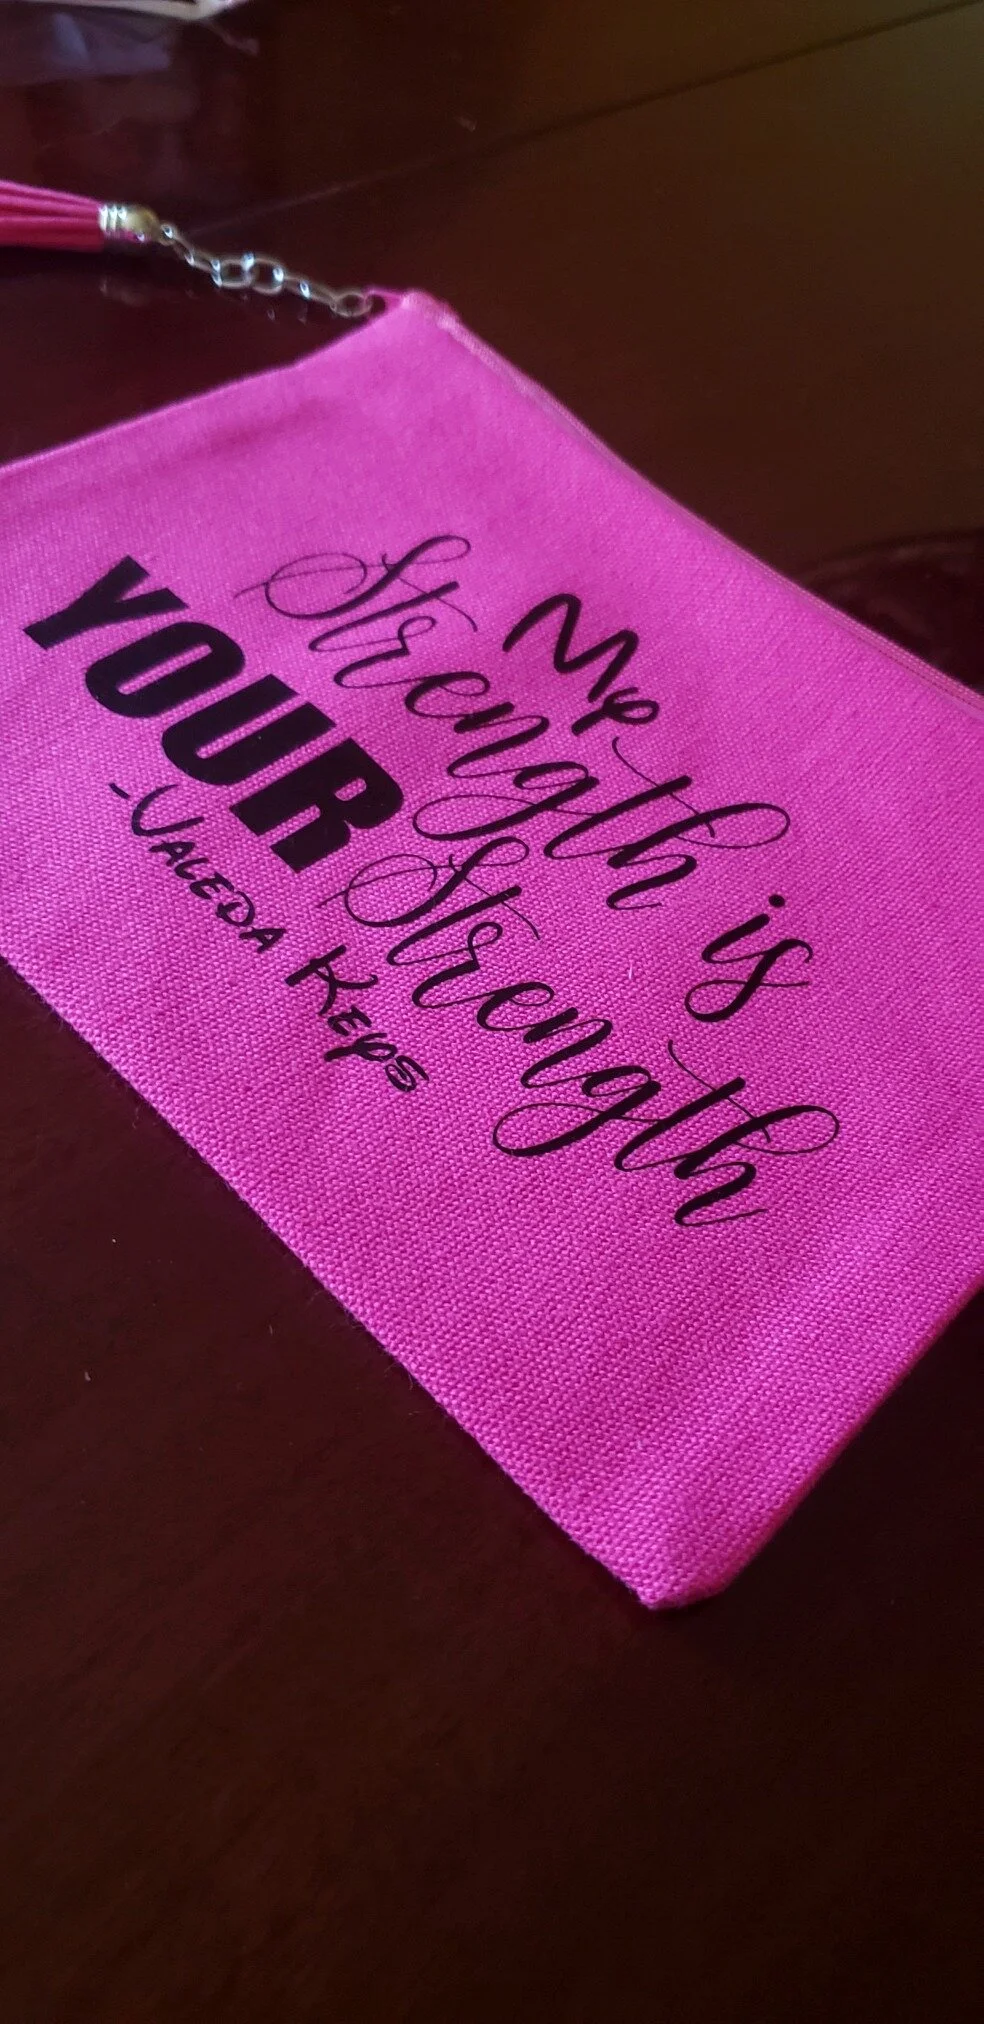 My
Strength is
YOUR Strength
-Valeda Keys